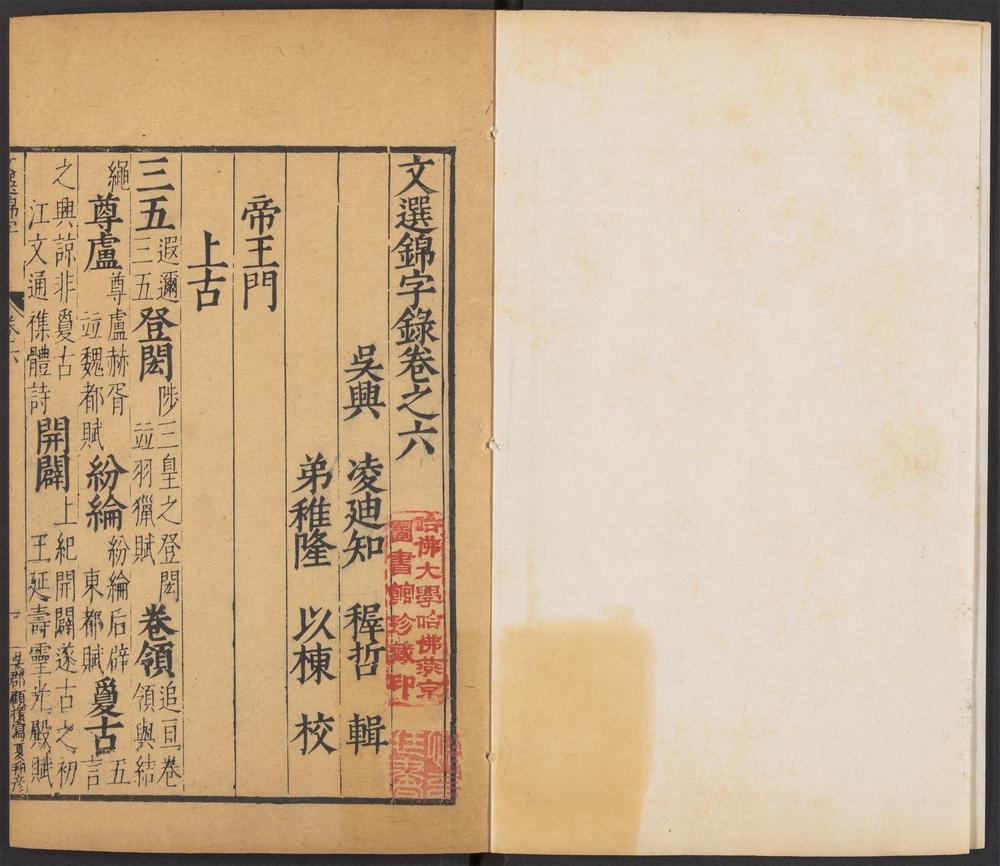 文選錦字錄卷之六
吳興 凌廸知 穉哲 輯
弟稚隆 以棟 校
帝王門
上古
三五 遐邇三五 登閎 陟三皇之登閎 竝羽獵賦 卷領 追亘卷領與結
繩 尊盧 尊盧赫胥 竝魏都賦 紛綸 紛綸后辟 東都賦 敻古 五言
之興諒非敻古 江文通襍體詩 開闢 上紀開闢遂古之初 王延壽靈光殿賦
卷六
一
吳郡顧檈寫
哈佛大學哈佛燕京圖書館珍藏印